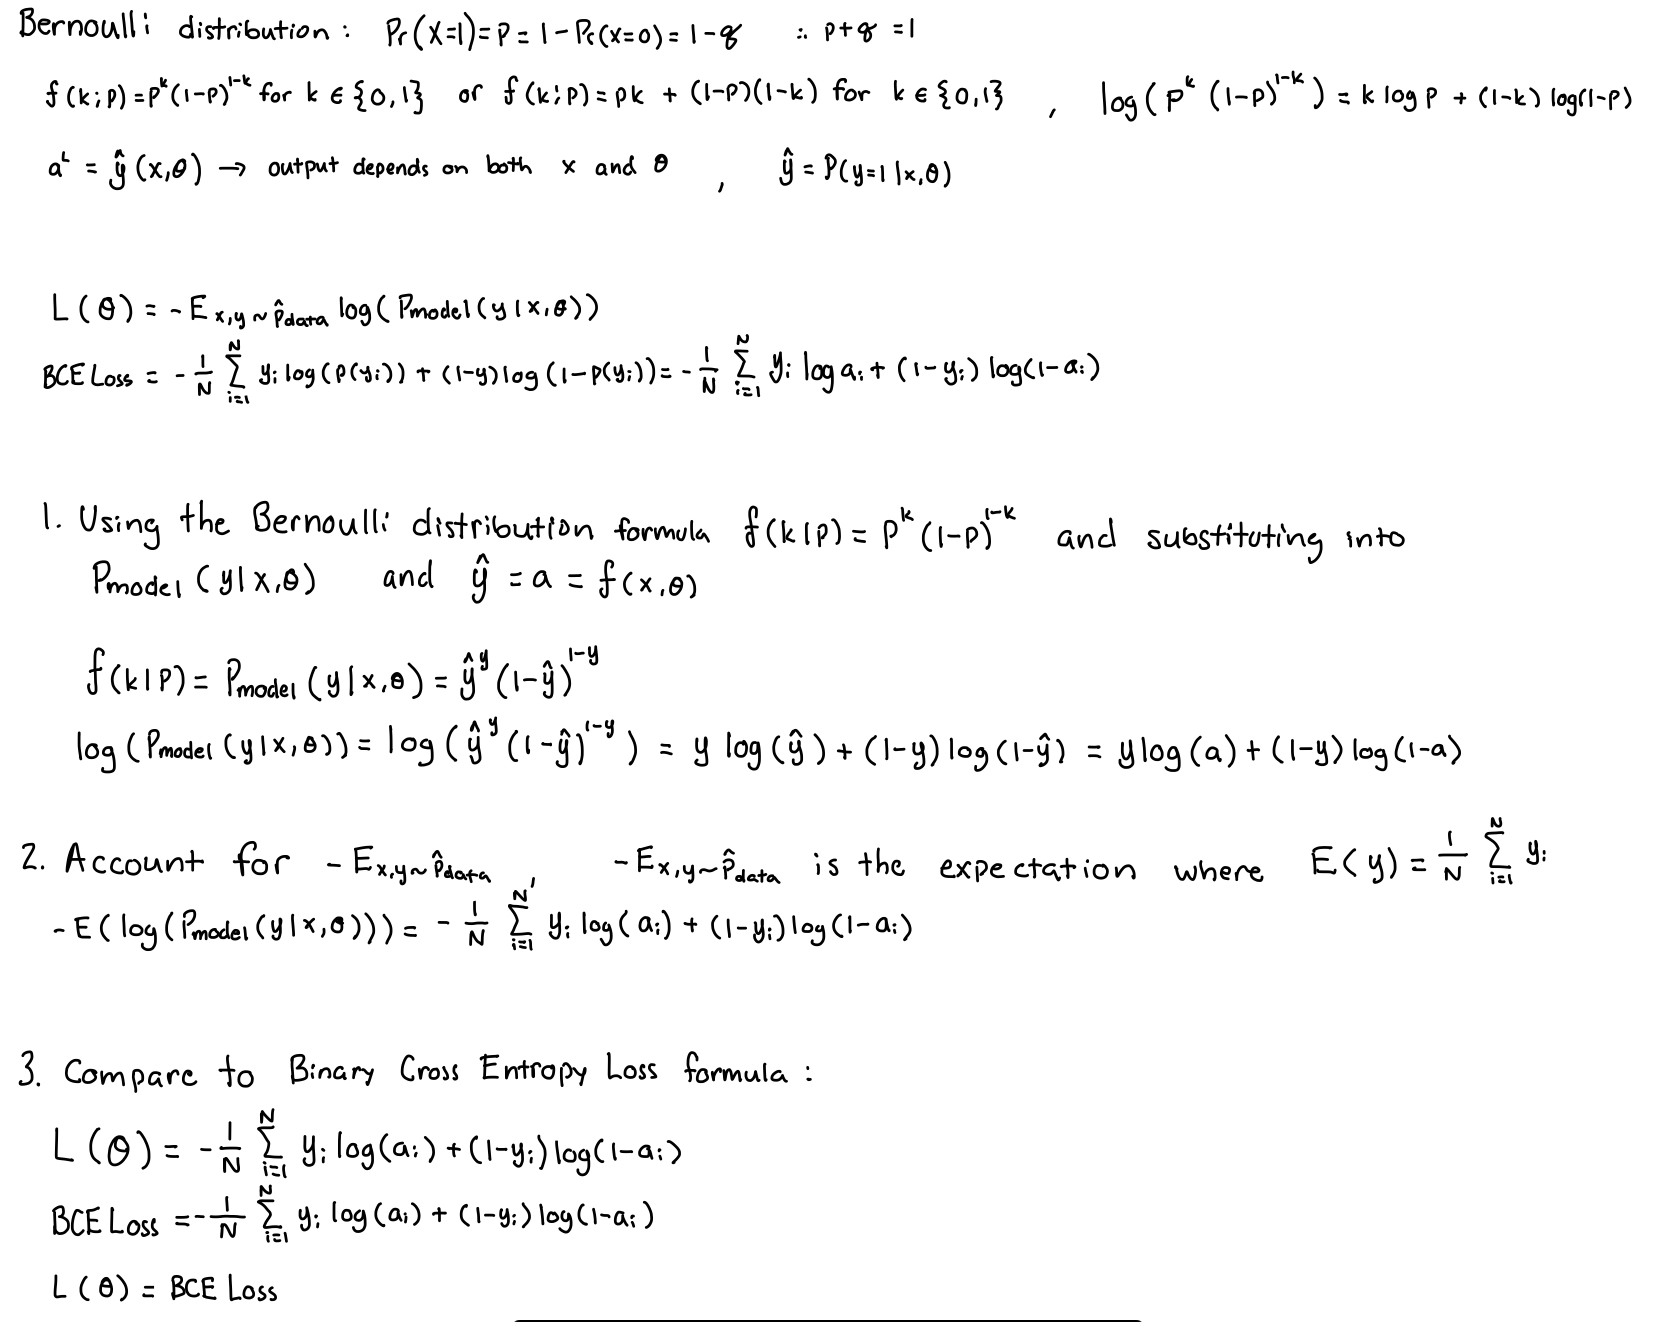 Bernoulli distribution: Pr(X=1)=p=1-Pr(X=0)=1-q ∴ p+q=1
f(k;p)=p^k(1-p)^{1-k} for k ∈ {0,1} or f(k;p)=pk + (1-p)(1-k) for k ∈ {0,1} , log(p^k (1-p)^{1-k}) = k log p + (1-k) log(1-p)
a^L = ŷ(x,θ) → output depends on both x and θ , ŷ = P(y=1|x,θ)
L(θ) = -E_{x,y~p̂data} log(Pmodel(y|x,θ))
BCE Loss = -1/N Σ_{i=1}^{N} y_i log(p(y_i)) + (1-y)log(1-p(y_i)) = -1/N Σ_{i=1}^{N} y_i log a_i + (1-y_i) log(1-a_i)
1. Using the Bernoulli distribution formula f(k|p) = p^k (1-p)^{1-k} and substituting into
Pmodel(y|x,θ) and ŷ = a = f(x,θ)
f(k|p) = Pmodel(y|x,θ) = ŷ^y (1-ŷ)^{1-y}
log(Pmodel(y|x,θ)) = log(ŷ^y (1-ŷ)^{1-y}) = y log(ŷ) + (1-y) log(1-ŷ) = y log(a) + (1-y) log(1-a)
2. Account for -E_{x,y~p̂data} , -E_{x,y~p̂data} is the expectation where E(y) = 1/N Σ_{i=1}^{N} y_i
-E(log(Pmodel(y|x,θ))) = -1/N Σ_{i=1}^{N} y_i log(a_i) + (1-y_i) log(1-a_i)
3. Compare to Binary Cross Entropy Loss formula:
L(θ) = -1/N Σ_{i=1}^{N} y_i log(a_i) + (1-y_i) log(1-a_i)
BCE Loss = -1/N Σ_{i=1}^{N} y_i log(a_i) + (1-y_i) log(1-a_i)
L(θ) = BCE Loss